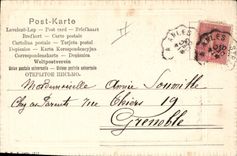 Post-Karte
Levelezö-Lap — Post card — Briefkaart
Brefkort — Carte postale
Cartolina postale — Tarjeta postal
Dopisnice — Karta Korespondencyjna
Correspondenzkarte
Weltpostverein
Union postale universelle — Unione postale universale
ОТКРЫТОЕ ПИСЬМО.
ARLES
ARLES
Mademoiselle Annie
Chez ses Parents rue Thiers 19
Grenoble